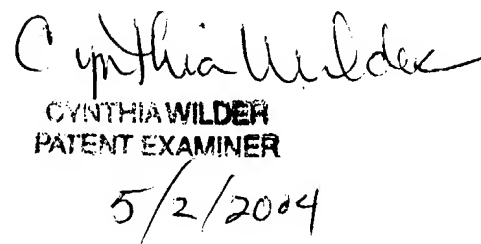 Cynthia Wilder
CYNTHIA WILDER
PATENT EXAMINER
5/2/2004